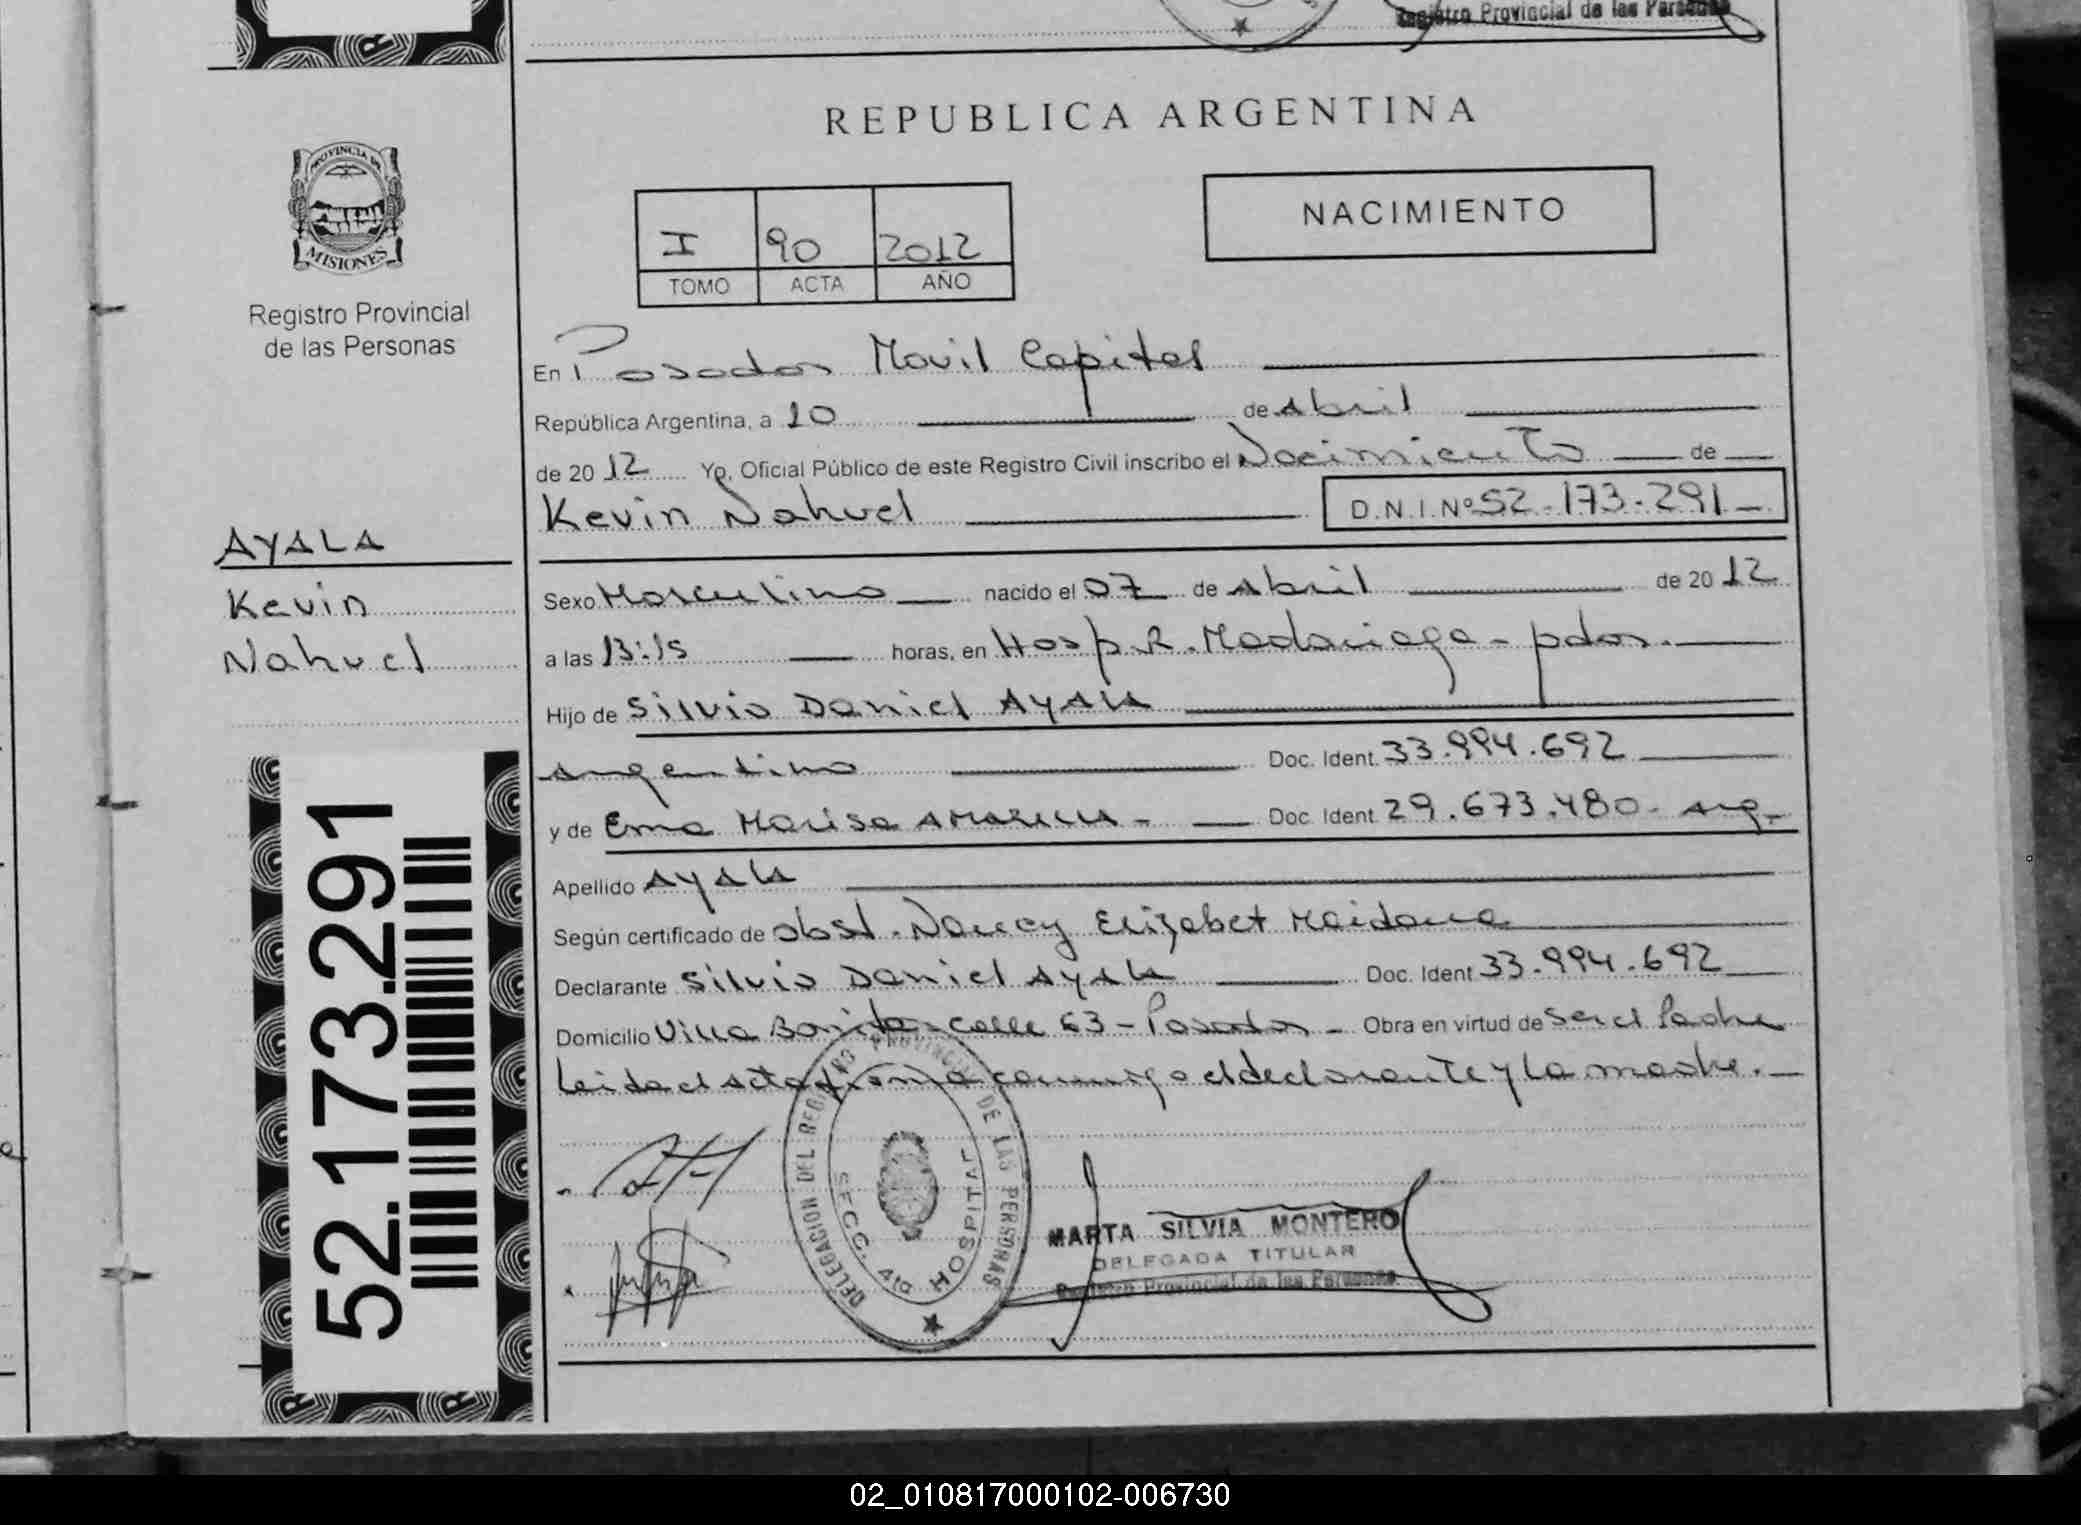 Registro Provincial de las Personas
REPUBLICA ARGENTINA
PROVINCIA DE
MISIONES
Registro Provincial
de las Personas
NACIMIENTO
I 90 2012
TOMO ACTA AÑO
En Posadas Movil Capital
República Argentina, a 10 de Abril
de 20 12 Yo, Oficial Público de este Registro Civil inscribo el Nacimiento de
Kevin Nahuel D.N.I.Nº 52-173-291
AYALA
Kevin
Nahuel
Sexo Masculino nacido el 07 de Abril de 20 12
a las 13:15 horas, en Hosp. R. Madariaga - pdas.
Hijo de Silvio Daniel AYALA
Argentino Doc. Ident. 33.994.692
y de Ema Marisa AMARILLA - Doc. Ident 29.673.480 - Arg.
Apellido AYALA
Según certificado de obst. Nancy Elizabet Maidana
Declarante Silvio Daniel AYALA Doc. Ident 33.994.692
Domicilio Villa Bonita - calle 63 - Posadas - Obra en virtud de ser el Padre
Leida el acta firma conmigo el declarante y la madre.
52.173.291
DELEGACION DEL REGISTRO PROVINCIAL DE LAS PERSONAS
SECC. 4ta HOSPITAL
MARTA SILVIA MONTERO
DELEGADA TITULAR
Registro Provincial de las Personas
02_010817000102-006730